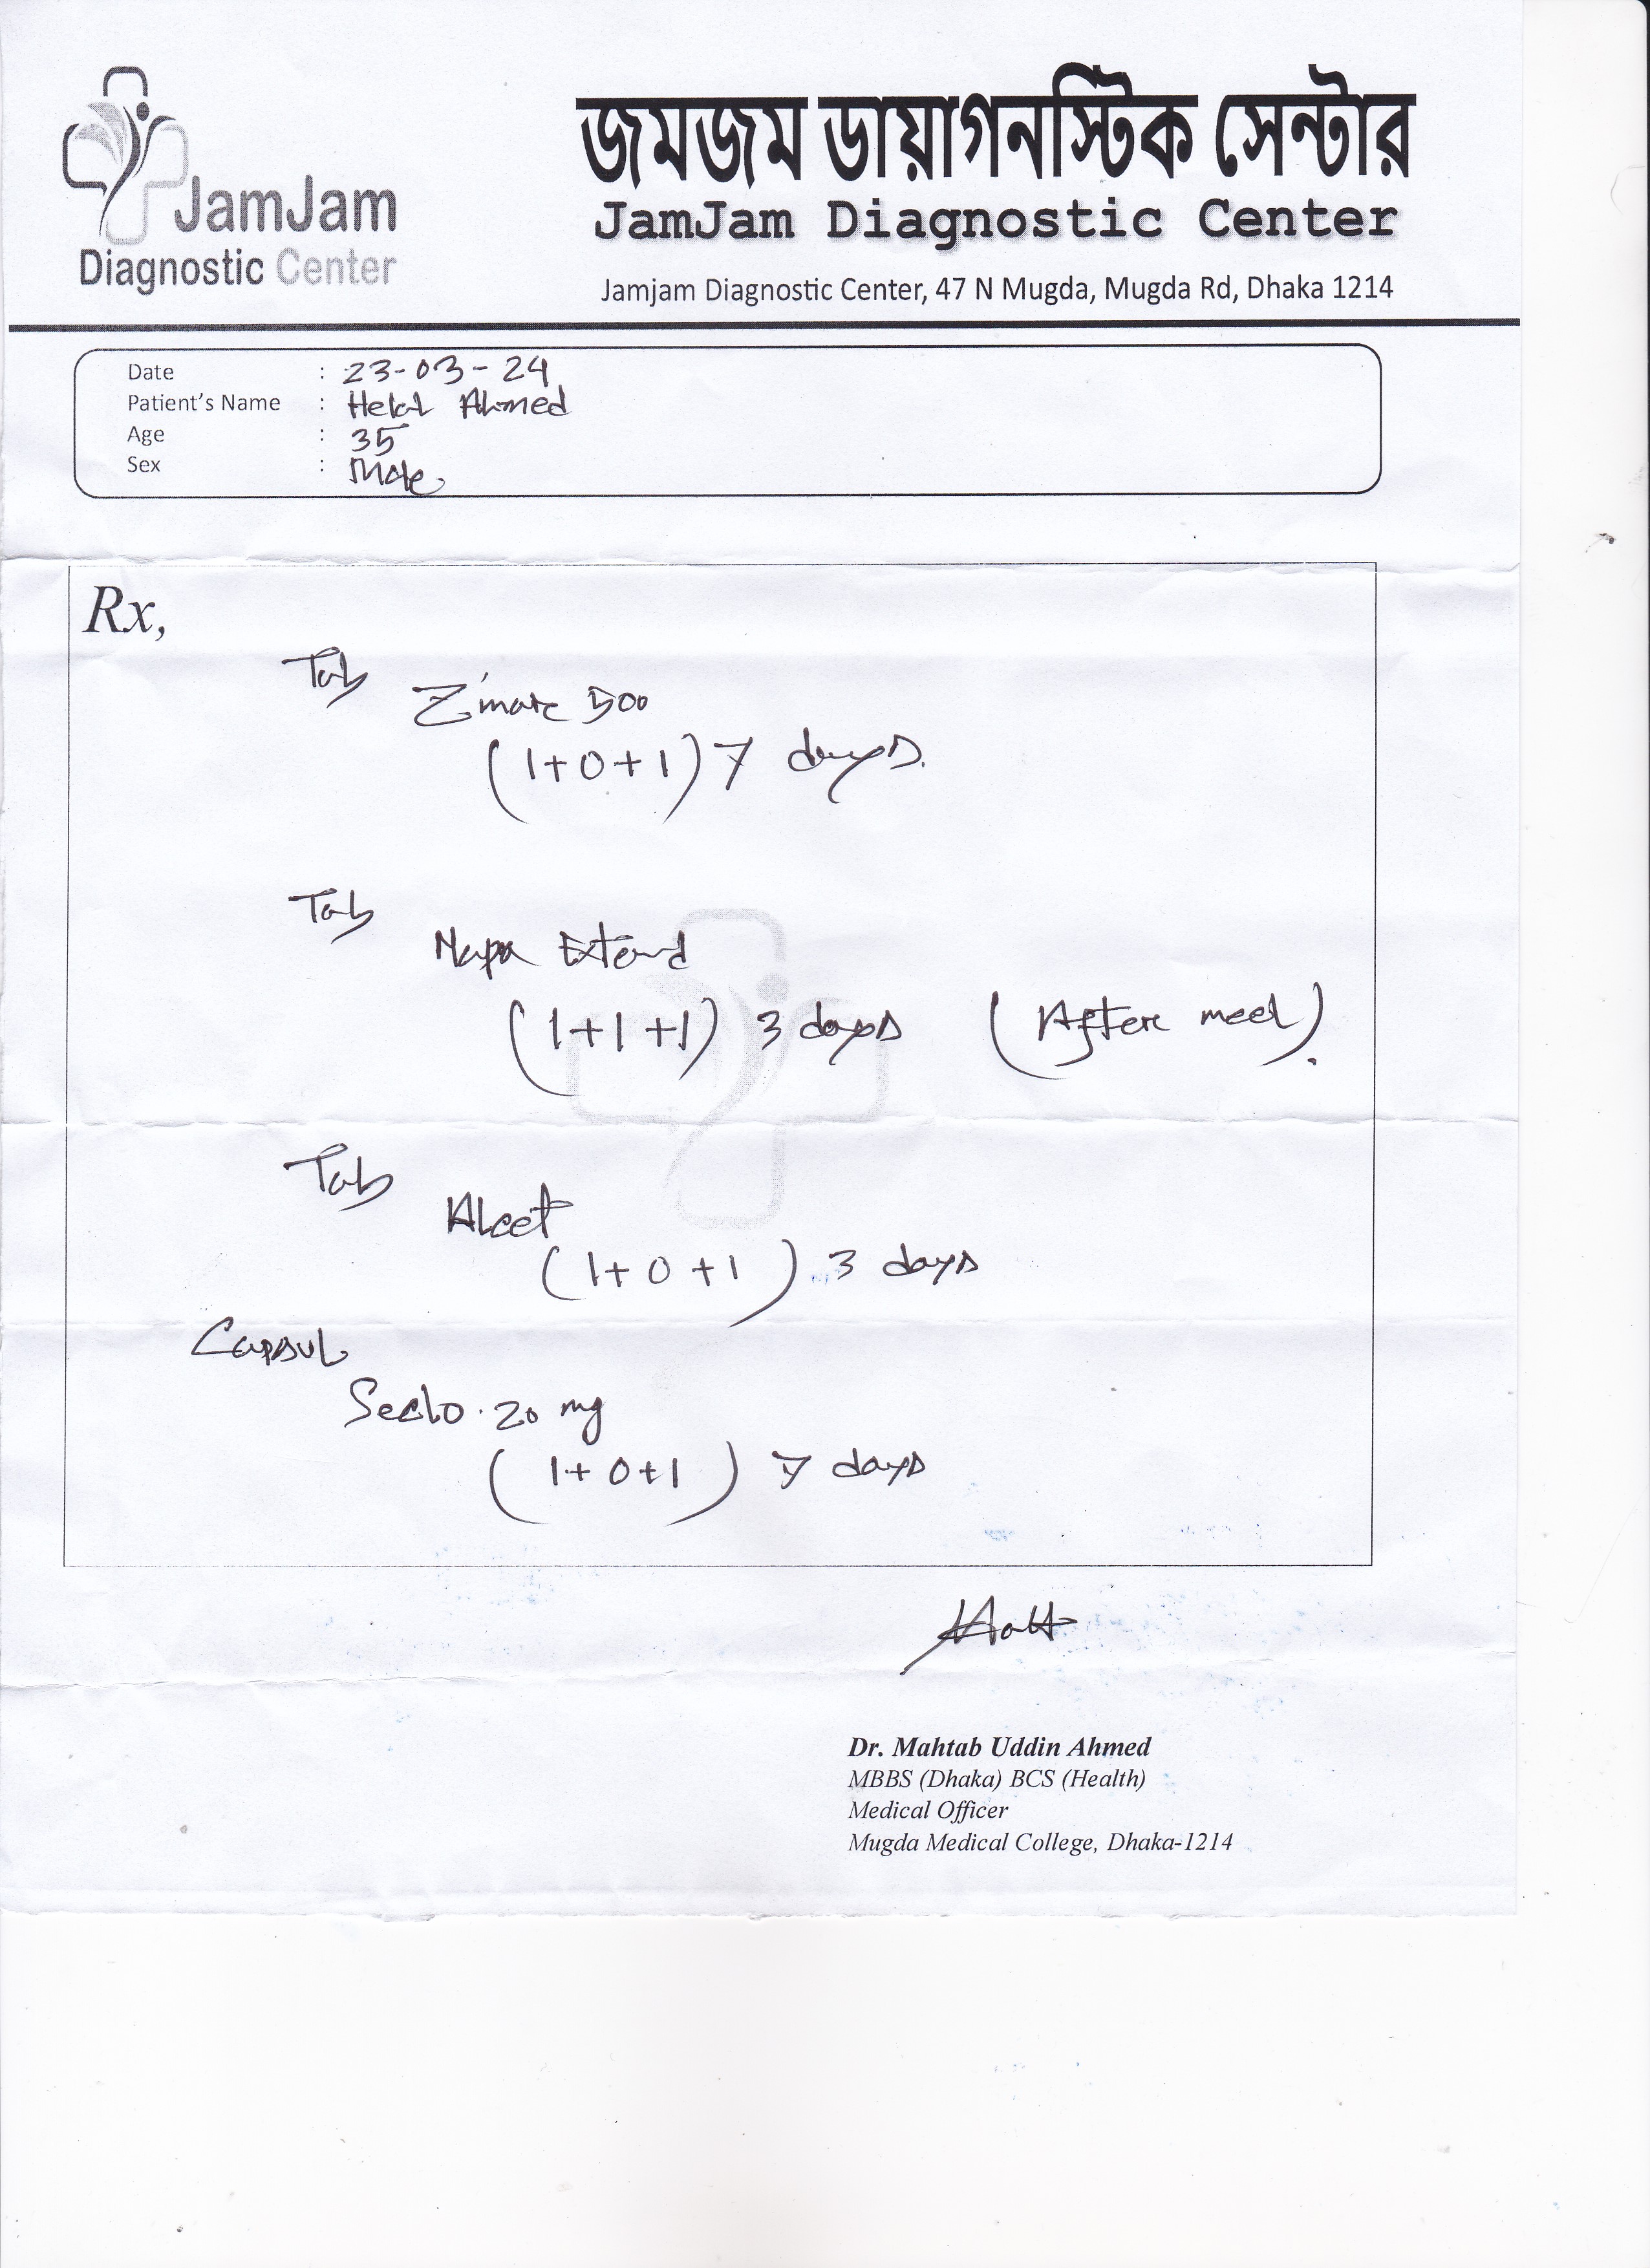 JamJam
Diagnostic Center
জমজম ডায়াগনস্টিক সেন্টার
JamJam Diagnostic Center
Jamjam Diagnostic Center, 47 N Mugda, Mugda Rd, Dhaka 1214
Date : 23-03-24
Patient's Name : Helal Ahmed
Age : 35
Sex : Male
Rx,
Tab
Zimax 500
(1+0+1) 7 days.
Tab
Napa Extend
(1+1+1) 3 days (After meel).
Tab
Alcet
(1+0+1) 3 days
Capsul
Seclo. 20 mg
(1+0+1) 7 days
Dr. Mahtab Uddin Ahmed
MBBS (Dhaka) BCS (Health)
Medical Officer
Mugda Medical College, Dhaka-1214